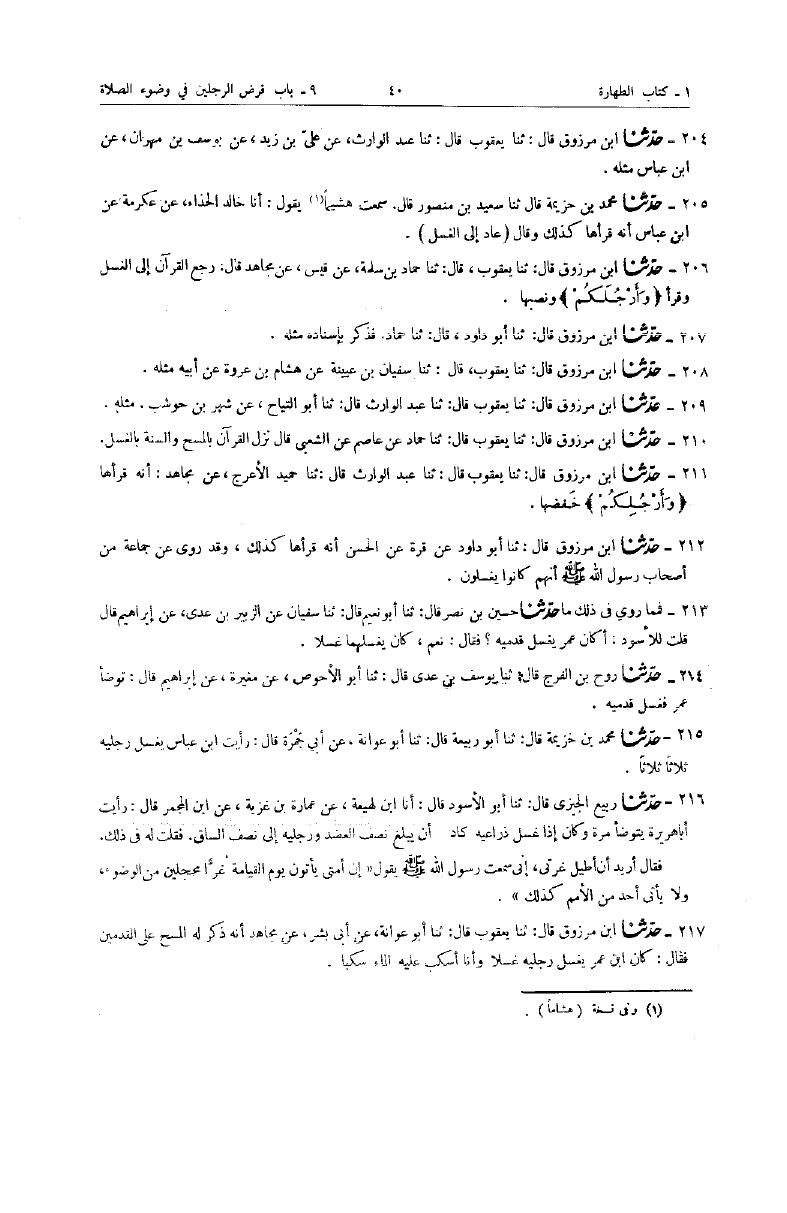 ١ ـ كتاب الطهارة ٤٠ ٩ ـ باب فرض الرجلين في وضوء الصلاة
٢٠٤ ـ حدّثنا ابن مرزوق قال : ثنا يعقوب قال : ثنا عبد الوارث، عن عليّ بن زيد ، عن يوسف بن مهران ، عن
ابن عباس مثله .
٢٠٥ ـ حدّثنا محمد بن خزيمة قال ثنا سعيد بن منصور قال. سمعت هشيماً(١) يقول : أنا خالد الحذاء، عن عكرمة عن
ابن عباس أنه قرأها كذلك وقال (عاد إلى الغسل) .
٢٠٦ ـ حدّثنا ابن مرزوق قال: ثنا يعقوب ، قال: ثنا حماد بن سلمة، عن قيس ، عن مجاهد قال: رجع القرآن إلى الغسل
وقرأ ﴿وَأَرْجُلَكُمْ﴾ ونصبها .
٢٠٧ ـ حدّثنا ابن مرزوق قال: ثنا أبو داود ، قال: ثنا حماد. فذكر بإسناده مثله .
٢٠٨ ـ حدّثنا ابن مرزوق قال: ثنا يعقوب، قال : ثنا سفيان بن عيينة عن هشام بن عروة عن أبيه مثله .
٢٠٩ ـ حدّثنا ابن مرزوق قال: ثنا يعقوب قال: ثنا عبد الوارث قال: ثنا أبو التياح ، عن شهر بن حوشب . مثله .
٢١٠ ـ حدّثنا ابن مرزوق قال: ثنا يعقوب قال: ثنا حماد عن عاصم عن الشعبي قال نزل القرآن بالمسح والسنة بالغسل.
٢١١ ـ حدّثنا ابن مرزوق قال: ثنا يعقوب قال : ثنا عبد الوارث قال :ثنا حميد الأعرج ، عن مجاهد : أنه قرأها
﴿وَأَرْجُلِكُمْ﴾ خَفضها .
٢١٢ ـ حدّثنا ابن مرزوق قال : ثنا أبو داود عن قرة عن الحسن أنه قرأها كذلك ، وقد روى عن جماعة من
أصحاب رسول الله ﷺ أنهم كانوا يغسلون .
٢١٣ ـ فما روي فى ذلك ما حدّثنا حسين بن نصر قال: ثنا أبو نعيم قال: ثنا سفيان عن الزبير بن عدى، عن إبراهيم قال
قلت للأسود : أكان عمر يغسل قدميه ؟ فقال : نعم ، كان يغسلهما غسلا .
٢١٤ ـ حدّثنا روح بن الفرج قال: ثنا يوسف بن عدى قال : ثنا أبو الأحوص ، عن مغيرة ، عن إبراهيم قال : توضأ
عمر فغسل قدميه .
٢١٥ ـ حدّثنا محمد بن خزيمة قال: ثنا أبو ربيعة قال: ثنا أبو عوانة ، عن أبي جَمْرَة قال : رأيت ابن عباس يغسل رجليه
ثلاثاً ثلاثاً .
٢١٦ ـ حدّثنا ربيع الجيزى قال: ثنا أبو الأسود قال : أنا ابن لهيعة ، عن عمارة بن غزية ، عن ابن المجمر قال : رأيت
أبا هريرة يتوضأ مرة وكان إذا غسل ذراعيه كاد أن يبلغ نصف العضد ورجليه إلى نصف الساق. فقلت له فى ذلك.
فقال أريد أن أطيل غرتى، إنى سمعت رسول الله ﷺ يقول « إن أمتى يأتون يوم القيامة غُرًّا محجلين من الوضوء،
ولا يأتى أحد من الأمم كذلك » .
٢١٧ ـ حدّثنا ابن مرزوق قال: ثنا يعقوب قال: ثنا أبو عوانة، عن أبى بشر ، عن مجاهد أنه ذكر له المسح على القدمين
فقال : كان ابن عمر يغسل رجليه غسلا وأنا أسكب عليه الماء سكبا .
(١) وفى نسخة (هشاماً) .